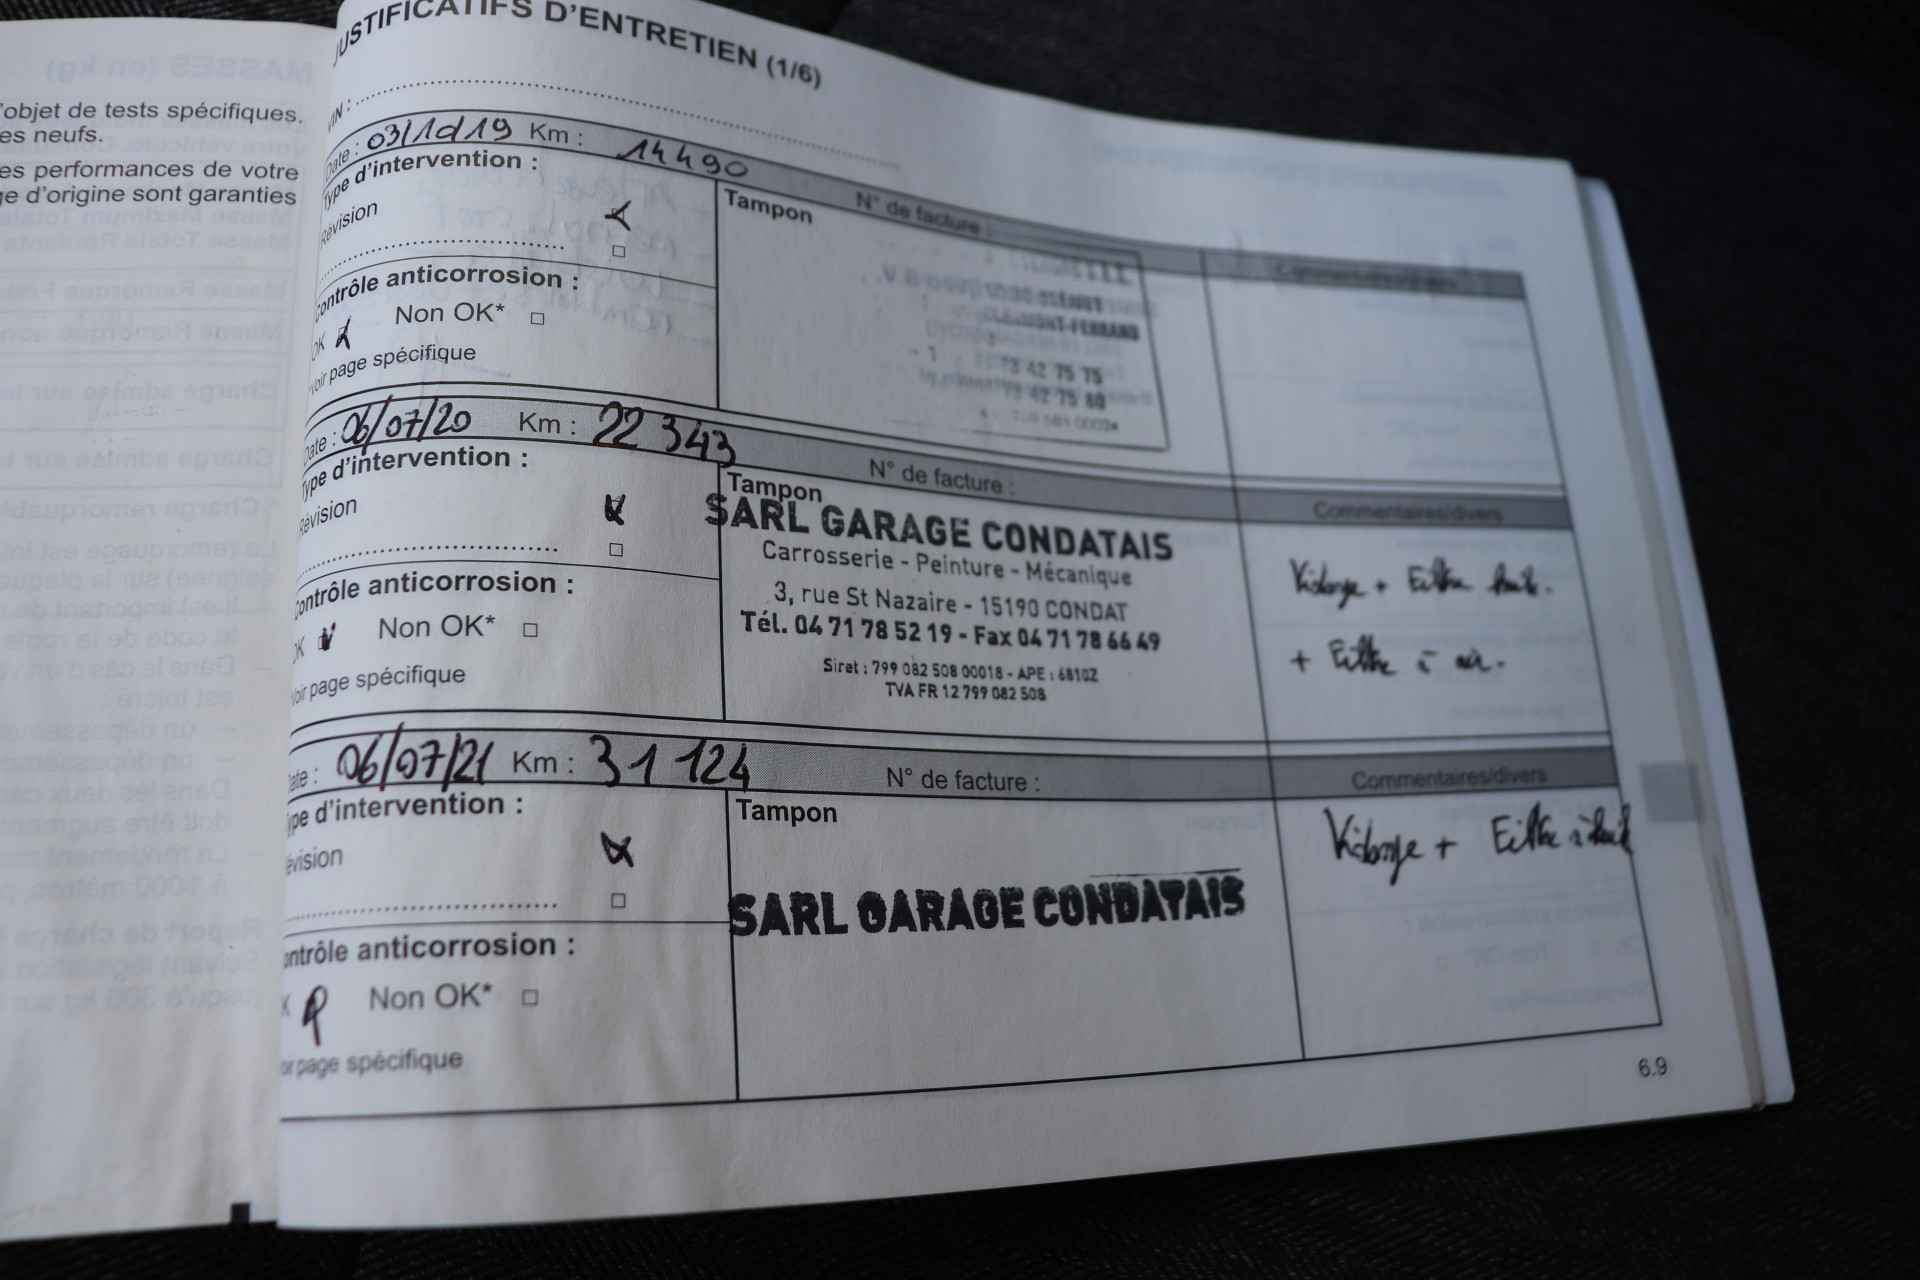 'objet de tests spécifiques.
es neufs.
es performances de votre
ge d'origine sont garanties
JUSTIFICATIFS D'ENTRETIEN (1/6)
VIN :
Date : 03/1d/19 Km : 14490 N° de facture :
Type d'intervention :
Révision
Tampon
CLERMONT-FERRAND
73 42 75 75
73 42 75 80
Contrôle anticorrosion :
OK Non OK*
voir page spécifique
Date : 06/07/20 Km : 22 343 N° de facture : Commentaires/divers
Type d'intervention :
Révision
Tampon
SARL GARAGE CONDATAIS
Carrosserie - Peinture - Mécanique
3, rue St Nazaire - 15190 CONDAT
Tél. 04 71 78 52 19 - Fax 04 71 78 66 49
Siret : 799 082 508 00018 - APE : 6810Z
TVA FR 12 799 082 508
Vidange + Filtre huile.
+ Filtre à air.
Contrôle anticorrosion :
OK Non OK*
voir page spécifique
ate : 06/07/21 Km : 31 124 N° de facture : Commentaires/divers
ype d'intervention :
évision
Tampon
SARL GARAGE CONDATAIS
Vidange + Filtre à huile
ontrôle anticorrosion :
K Non OK*
oir page spécifique
6.9